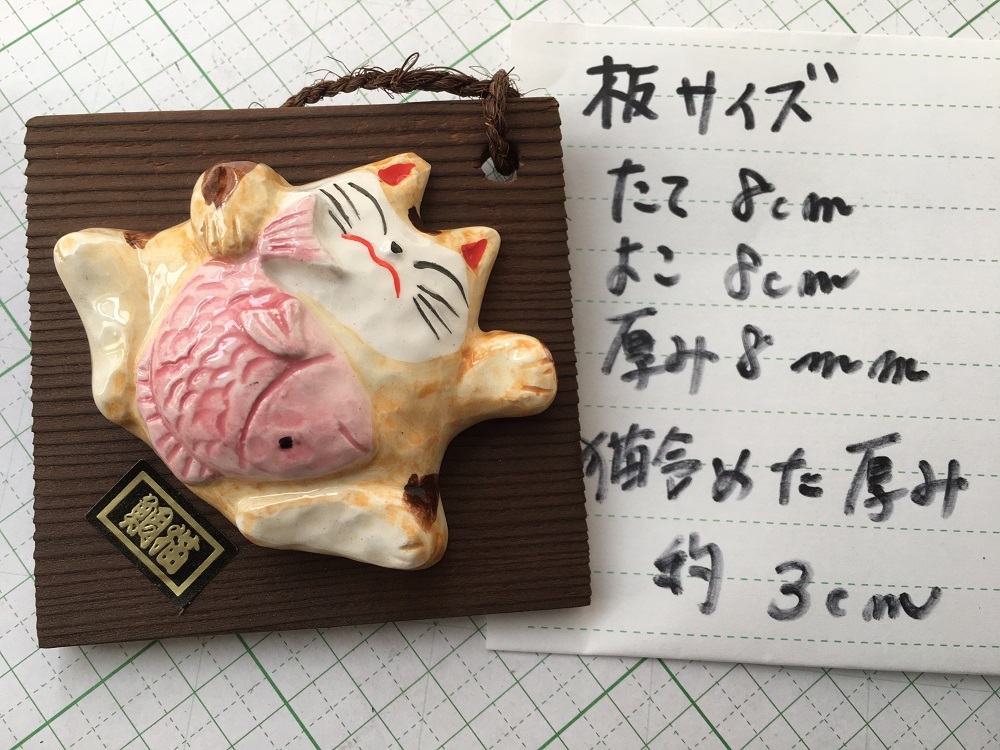 板サイズ
たて 8cm
よこ 8cm
厚み 8mm
猫含めた厚み
約 3cm
鯛猫